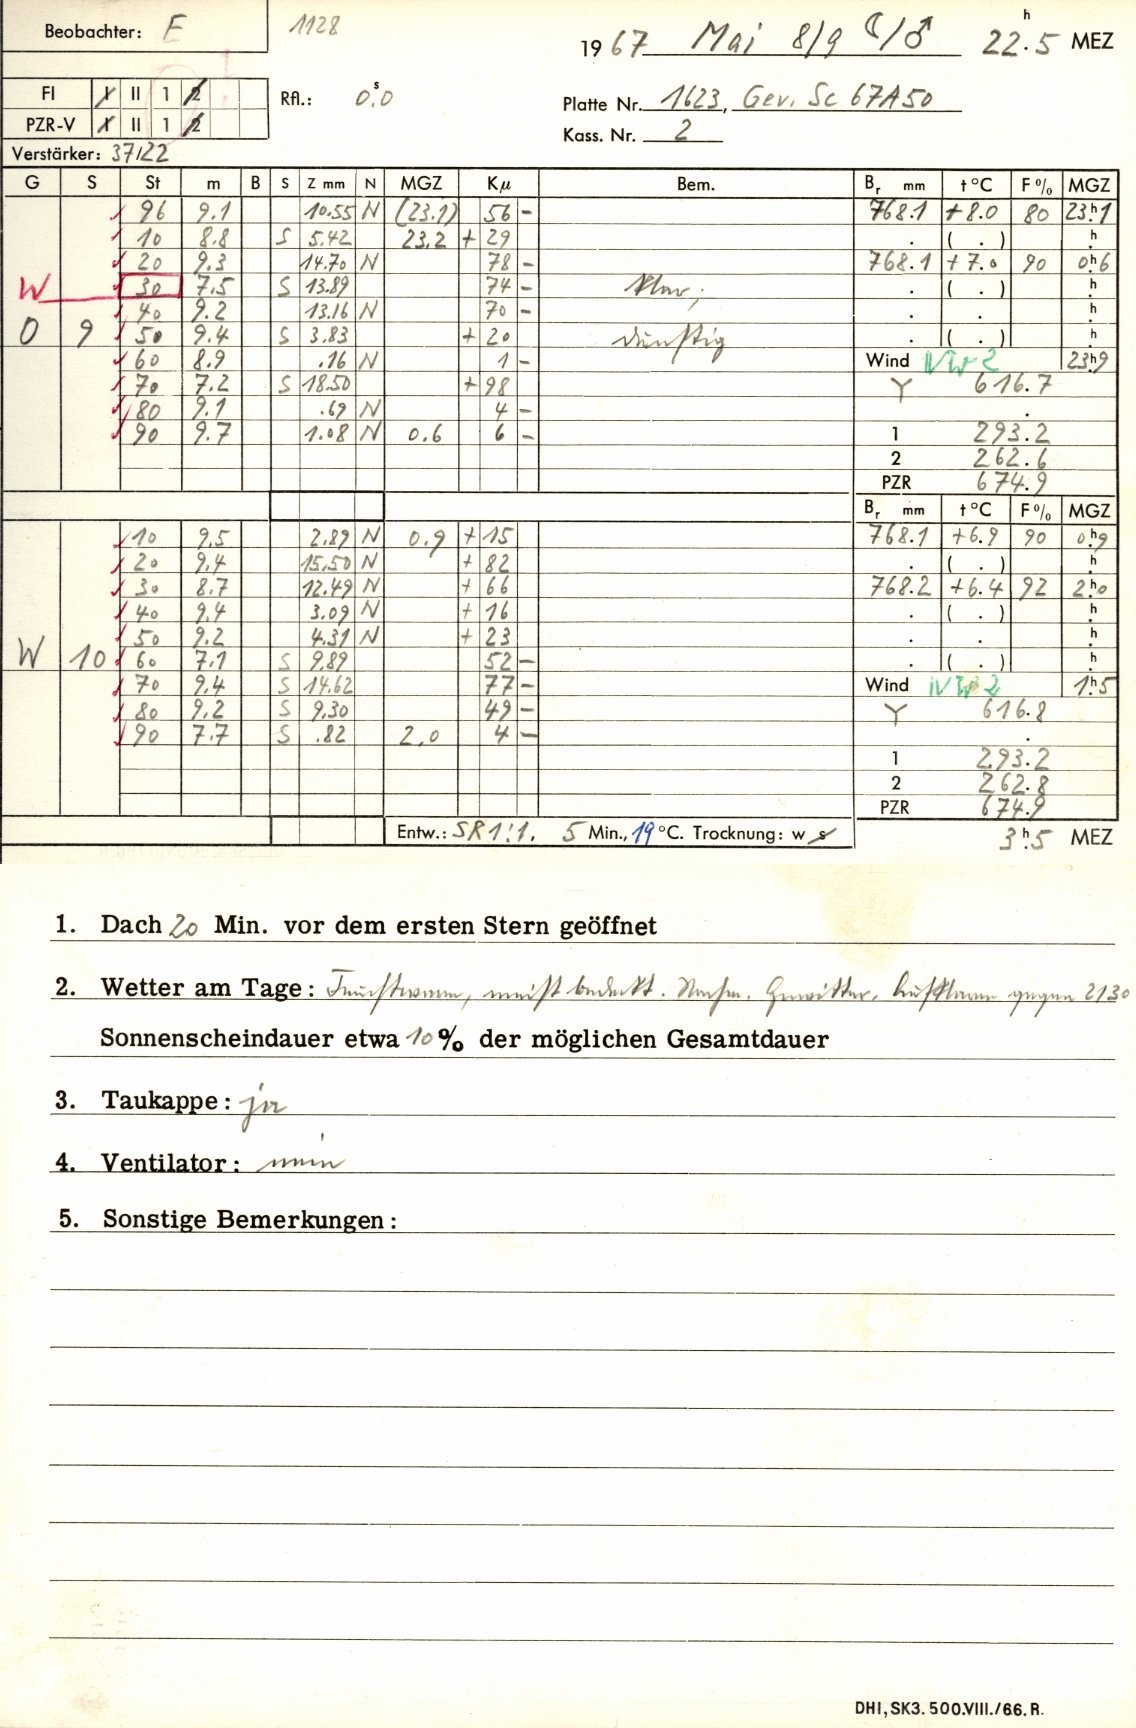 Beobachter: E 1128 1967 Mai 8/9 ☾/♂ 22.ʰ5 MEZ
FI I II 1 2 Rfl.: 0.ˢ0 Platte Nr. 1623, Gev. Sc 67A50
PZR-V I II 1 2 Kass. Nr. 2
Verstärker: 37/22
G S St m B S Z mm N MGZ Kμ Bem. Bᵣ mm t °C F % MGZ
96 9.1 10.55 N (23.1) 56 - 768.1 +8.0 80 23.ʰ1
10 8.8 S 5.42 23.2 + 29 . ( . ) .ʰ
20 9.3 14.70 N 78 - 768.1 +7.0 90 0.ʰ6
W 30 7.5 S 13.89 74 - klar; . ( . ) .ʰ
40 9.2 13.16 N 70 - . . .ʰ
O 9 50 9.4 S 3.83 + 20 dunstig . ( . ) .ʰ
60 8.9 .16 N 1 - Wind NW 2 23.ʰ9
70 7.2 S 18.50 + 98 Y 616.7
80 9.1 .69 N 4 - .
90 9.7 1.08 N 0.6 6 - 1 293.2
2 262.6
PZR 674.9
Bᵣ mm t °C F % MGZ
10 9.5 2.89 N 0.9 + 15 768.1 +6.9 90 0.ʰ9
20 9.4 15.50 N + 82 . ( . ) .ʰ
30 8.7 12.49 N + 66 768.2 +6.4 92 2.ʰ0
40 9.4 3.09 N + 16 . ( . ) .ʰ
50 9.2 4.31 N + 23 . . .ʰ
W 10 60 7.1 S 9.89 52 - . ( . ) .ʰ
70 9.4 S 14.62 77 - Wind NW 2 1.ʰ5
80 9.2 S 9.30 49 - Y 616.8
90 7.7 S .82 2.0 4 - .
1 293.2
2 262.8
PZR 674.9
Entw.: SR 1:1. 5 Min., 19 °C. Trocknung: w s 3.ʰ5 MEZ
1. Dach 20 Min. vor dem ersten Stern geöffnet
2. Wetter am Tage: Feuchtwarm, meist bedeckt. Nachm. Gewitter. Aufklaren gegen 2130
Sonnenscheindauer etwa 10 % der möglichen Gesamtdauer
3. Taukappe: ja
4. Ventilator: nein
5. Sonstige Bemerkungen:
DHI, SK3. 500.VIII./66. R.